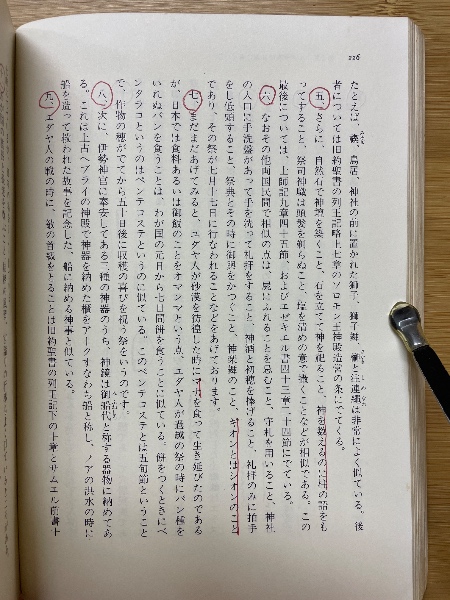 226
たとえば、襷、鳥居、神社の前に置かれた獅子、獅子舞、幟と注連縄は非常によく似ている。後
者については旧約聖書の列王記略上七章のソロモン王神殿造営の条にでてくる。
五、さらに、自然石で神壇を築くこと、石を立てて神を祀ること、神を数えるのに柱の語をも
ってすること、祭司神職は頭髪を剃らぬこと、塩を清めの意で蒔くことなどが相似である。この
最後については、士師記九章四十五節、およびエゼキエル書四十三章二十四節にでている。
六、なおその他両国民間で相似の点は、屍にふれることを忌むこと、守札を用いること、神社
の入口に手洗盤があって手を洗って礼拝をすること、神酒と初穂を捧げること、礼拝のみに拍手
をし低頭すること、祭典とその時に御輿をかつぐこと、神楽舞のこと、ギオンとはシオンのこと
であり、その祭が七月十七日に行なわれることなどをあげております。
七、まだまだあげてみると、ユダヤ人が砂漠を彷徨した時にマナを食って生き延びたのである
が、日本では食料あるいは御飯のことをオマンマという点、ユダヤ人が過越の祭の時にパン種を
いれぬパンを食うことは、わが国の元日から七日間餅を食うことに似ている。餅をつくときにペ
ンタラコというのはペンテコステというのに似ている。このペンテコステとは五旬節ということ
で、作物の穂がでてから五十日後に収穫の喜びを祝う祭をいうのです。
八、次に、伊勢神宮に奉安してある三種の神器のうち、神鏡は御船代と称する器物に納めてあ
る。これは上古ヘブライの神殿で神器を納めた櫃をアークすなわち船と称し、ノアの洪水の時に
船を造って救われた故事を記念した、船に納める神事と似ている。
九、ユダヤ人の戦の時に、敵の首級をとることは旧約聖書の列王記下の十章とサムエル前書十